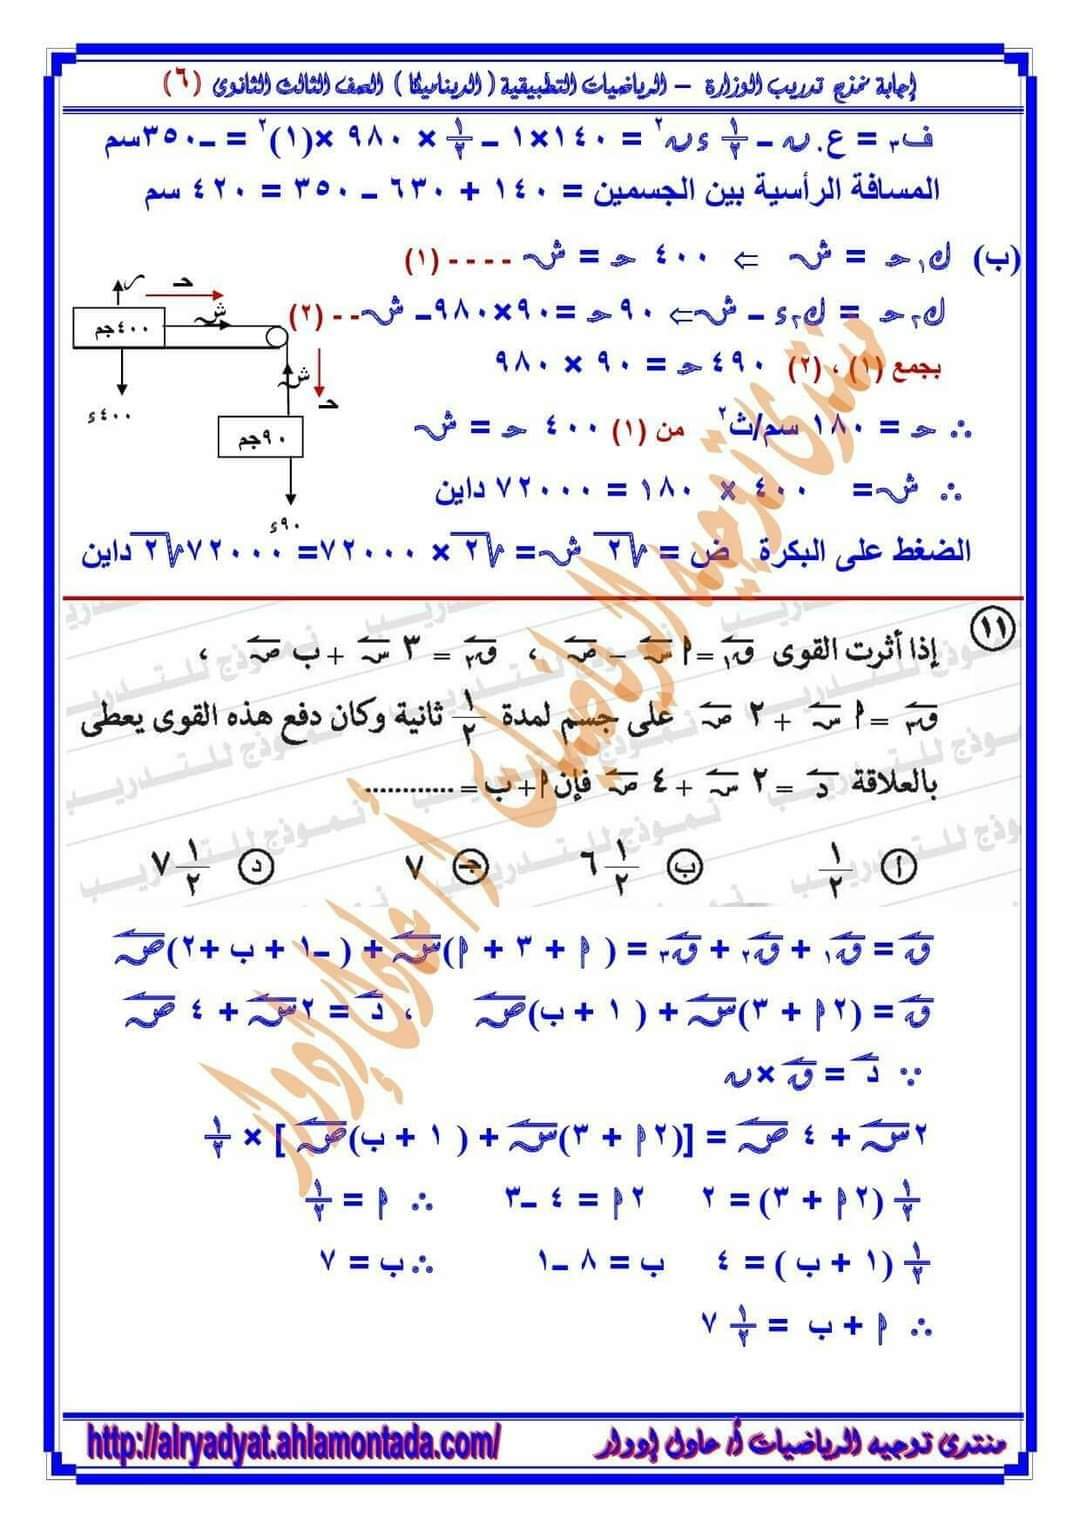 إجابة نموذج تدريب الوزارة – الرياضيات التطبيقية ( الديناميكا ) الصف الثالث الثانوى (٦)
ف٣ = ع. ن – ١/٢ ء ن٢ = ١٤٠×١ – ١/٢ × ٩٨٠ ×(١)٢ = –٣٥٠سم
المسافة الرأسية بين الجسمين = ١٤٠ + ٦٣٠ – ٣٥٠ = ٤٢٠ سم
(ب) ك١حـ = ش ⇐ ٤٠٠ حـ = ش - - - - (١)
ك٢حـ = ك٢ء – ش ⇐ ٩٠حـ =٩٠×٩٨٠– ش - - (٢)
بجمع (١) ، (٢) ٤٩٠ حـ = ٩٠ × ٩٨٠
∴ حـ = ١٨٠ سم/ث٢ من (١) ٤٠٠ حـ = ش
∴ ش = ٤٠٠ × ١٨٠ = ٧٢٠٠٠ داين
الضغط على البكرة ض = √٢ ش = √٢ × ٧٢٠٠٠ = ٧٢٠٠٠√٢ داين
ر
حـ
ش
٤٠٠جم
٤٠٠ء
ش
حـ
٩٠جم
٩٠ء
١١ إذا أثرت القوى ق١ = أ س – ص ، ق٢ = ٣ س + ب ص ،
ق٣ = أ س + ٢ ص على جسم لمدة ١/٢ ثانية وكان دفع هذه القوى يعطى
بالعلاقة د = ٢ س + ٤ ص فإن أ + ب = ............
أ ١/٢ ب ٦ ١/٢ جـ ٧ د ٧ ١/٢
ق = ق١ + ق٢ + ق٣ = ( أ + ٣ + أ)س + ( –١ + ب +٢)ص
ق = (٢أ + ٣)س + ( ١ + ب)ص ، د = ٢س + ٤ ص
∵ د = ق × ن
٢س + ٤ ص = [(٢أ + ٣)س + ( ١ + ب)ص ] × ١/٢
١/٢ (٢أ + ٣) = ٢ ٢أ = ٤ –٣ ∴ أ = ١/٢
١/٢ (١ + ب ) = ٤ ب = ٨ –١ ∴ ب = ٧
∴ أ + ب = ٧ ١/٢
منتدى توجيه الرياضيات أ/ عادل إدوار
http://alryadyat.ahlamontada.com/
منتدى توجيه الرياضيات أ/ عادل إدوار